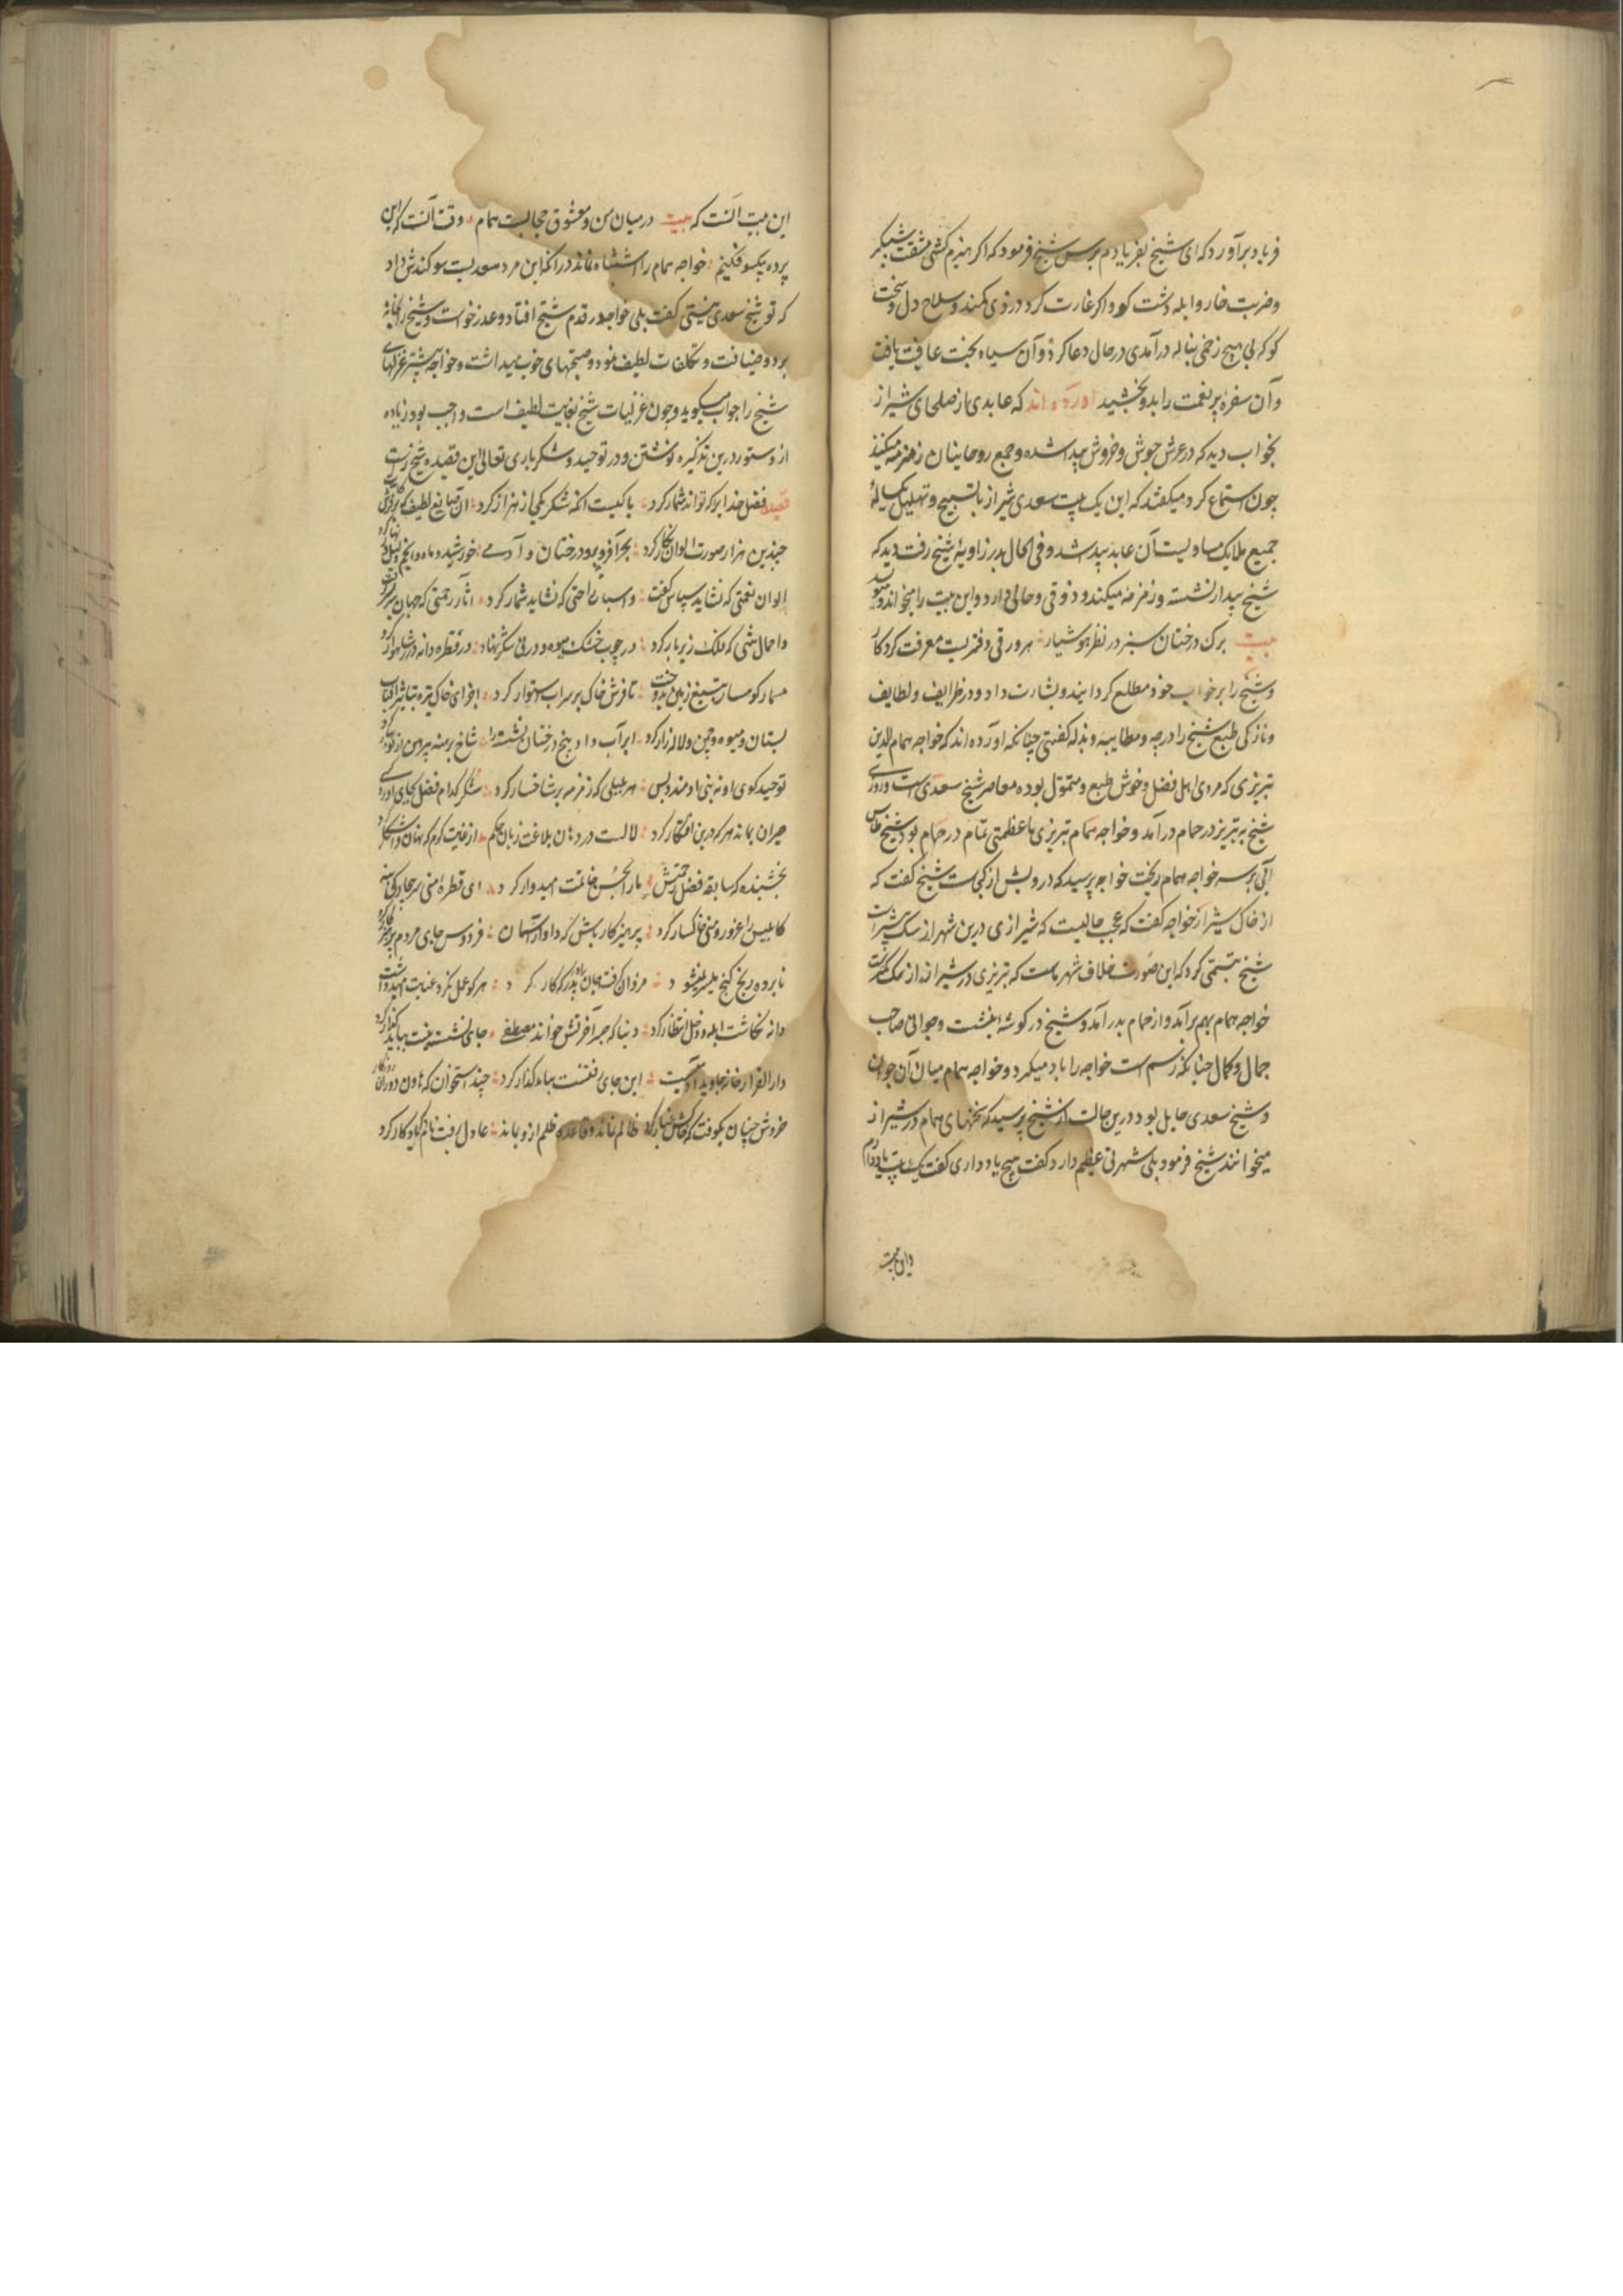 فریاد برآورد که ای شیخ بفریادم برس شیخ فرمود که اکر هیزم کشی مشقت شبکیر
و ضربت خار و ابله دشت کو و اکر غارت کرد دزدی کمند و سلاح دل و سخت
کو که بی هیچ زخمی بناله درآمدی در حال دعا کرد و آن سیاه بخت عافیت یافت
و آن سفره پر نعمت را بدو بخشید اورده اند که عابدی از صلحای شیراز
بخواب دید که در عرش جوش و خروش پیدا شده و جمع روحانیان زمزمه میکنند
چون استماع کرد میکفتند که این یک بیت سعدی شیراز با تسبیح و تهلیل یکساله
جمیع ملایک مساویست آن عابد بیدار شد و فی الحال بدر زاویه شیخ رفت دید که
شیخ بیدار نشسته و زمزمه میکند و ذوقی و حالی دارد و این بیت را میخواند
بیت برک درختان سبز در نظر هوشیار هر ورقی دفتریست معرفت کردکار
و شیخ را بر خواب خود مطلع کردانیند و بشارت داد و در ظرایف و لطایف
و نازکی طبع شیخ را درجه و مطایبه و بذله کفتی چنانکه اورده اند که خواجه همام الدین
تبریزی که مردی اهل فضل و خوش طبع و متمول بوده معاصر شیخ سعدی است روزی
شیخ به تبریز در حمام درآمد و خواجه همام تبریزی با عظمتی تمام در حمام بود شیخ طاس
آبی بر سر خواجه همام ریخت خواجه پرسید که درویش از کجاست شیخ کفت که
از خاک شیراز خواجه کفت که عجب حالیست که شیرازی درین شهر از سک بیشتر است
شیخ تبسمی کرد که این صورت خلاف شهر ماست که تبریزی در شیراز از سک کمتر است
خواجه همام بهم برآمد و از حمام بدر آمد و شیخ در کوشه بنشست و جوانی صاحب
جمال و کمال چنانکه رسم است خواجه را باد میکرد و خواجه همام میان آن جوان
و شیخ سعدی حایل بود درین حالت از شیخ پرسید که سخنهای همام در شیراز
میخوانند شیخ فرمود بلی شهرتی عظیم دارد کفت هیچ یاد داری کفت یک بیت یاد دارم
این بیت انست که بیت در میان من و معشوق حجابست همام وقت آنست که این
پرده بیکسو فکنیم خواجه همام را اشتباه نماند در انکه این مرد سعدیست سوکندش داد
که تو شیخ سعدی نیستی کفت بلی خواجه در قدم شیخ افتاد و عذر خواست و شیخ را بخانه
برد و ضیافت و تکلفات لطیف نمود و صحبتهای خوب میداشت و خواجه بیشتر غزلهای
شیخ را جواب میکوید و چون غزلیات شیخ بغایت لطیف است واجب بود زیاده
از دستور درین تذکیره نوشتن و در توحید و شکر باری تعالی این قصیده شیخ راست
قصیده فضل خدا را که تواند شمار کرد یا کیست انکه شکر یکی از هزار کرد آن صانع لطیف که بر فرش کاینات
چندین هزار صورت الوان نکار کرد بحر آفرید و بر و درختان و آدمی خورشید و ماه و انجم و لیل و نهار کرد
الوان نعمتی که نشاید سپاس کفت و اسباب راحتی که نشاید شمار کرد اثار رحمتی که جهان سر بسر کرفت
و احمال منتی که فلک زیر بار کرد در چوب خشک میوه و در نی شکر نهاد در قطره دانه در شاهوار کرد
مسمار کوهسار بتیغ زمین بدوخت تا فرش خاک بر سر اب استوار کرد اجزای خاک تیره بتاثیر افتاب
بستان و میوه و چمن و لاله زار کرد ابر آب داد بیخ درختان تشنه را شاخ برهنه پیرهن از نوبهار کرد
توحید کوی او نه بنی ادمند و بس هر بلبلی که زمزمه بر شاخسار کرد شکر کدام فضل بجای اورد کسی
حیران بماند هر که درین افتکار کرد لالست در دهان بلاغت زبان حکم از غایت کرم که نهان و اشکار کرد
بخشنده که سابقه فضل و رحمتش ما را بحسن خاتمت امیدوار کرد ای قطره منی سر بیچارکی بنه
کابلیس را غرور و منی خاکسار کرد پرهیزکار باش که داور آسمان فردوس جای مردم پرهیزکار کرد
نابرده رنج کنج میسر نمیشود مزد ان کرفت جان برادر که کار کرد هر کو عمل نکرد و عنایت امید داشت
دانه نکاشت ابله و دخل انتظار کرد دنیا که جسر آخرتش خواند مصطفی جای نشست نیست بباید کذار کرد
دار القرار خانه جاوید آدمیست این جای رفتنست بباید کذار کرد چند استخوان که هاون دوران روزکار
خردش چنان بکوفت که خاکش غبار کرد ظالم نماند و قاعده ظلم ازو بماند عادل برفت و نام نکو یادکار کرد